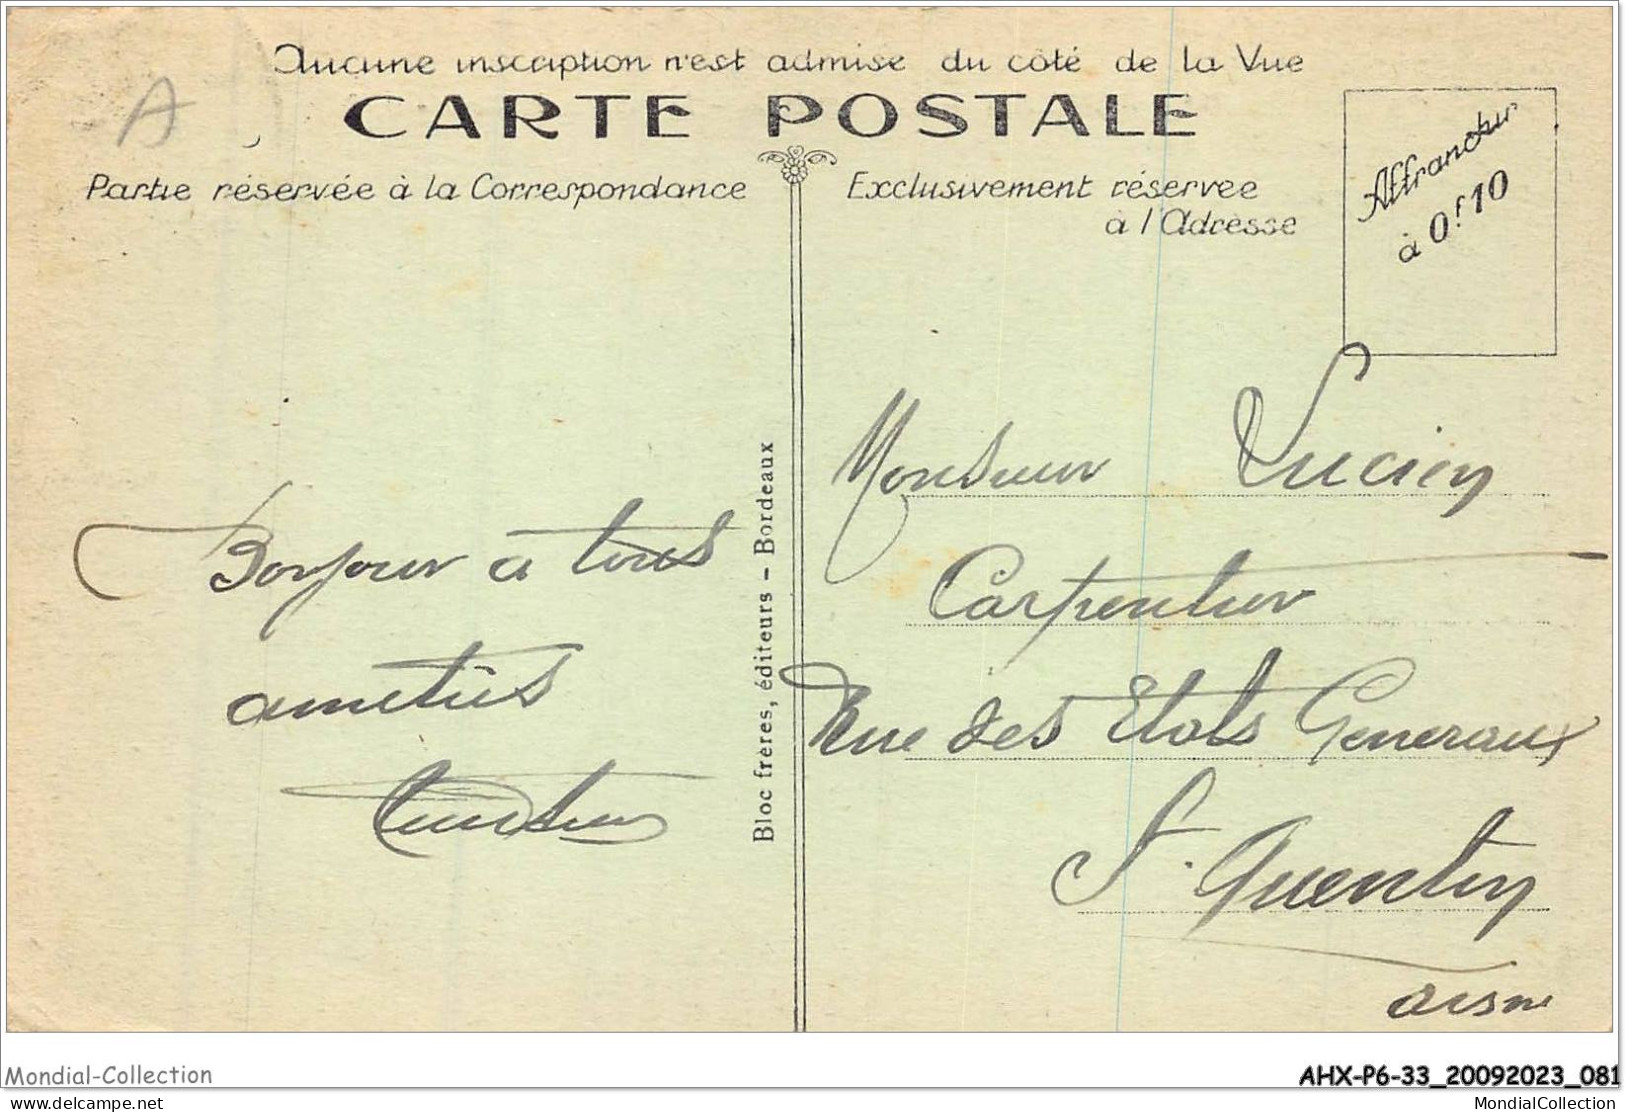 Aucune inscription n'est admise du côté de la Vue
A
CARTE POSTALE
Partie réservée à la Correspondance
Exclusivement réservee
à l'Adresse
Affranchir
à 0f10
Bonjour à tous
amitiés
Bloc frères, éditeurs - Bordeaux
Monsieur Lucien
Carpentier
Rue des Etats Generaux
St. Quentin
aisne
Mondial-Collection
AHX-P6-33_20092023_081
delcampe.net
MondialCollection